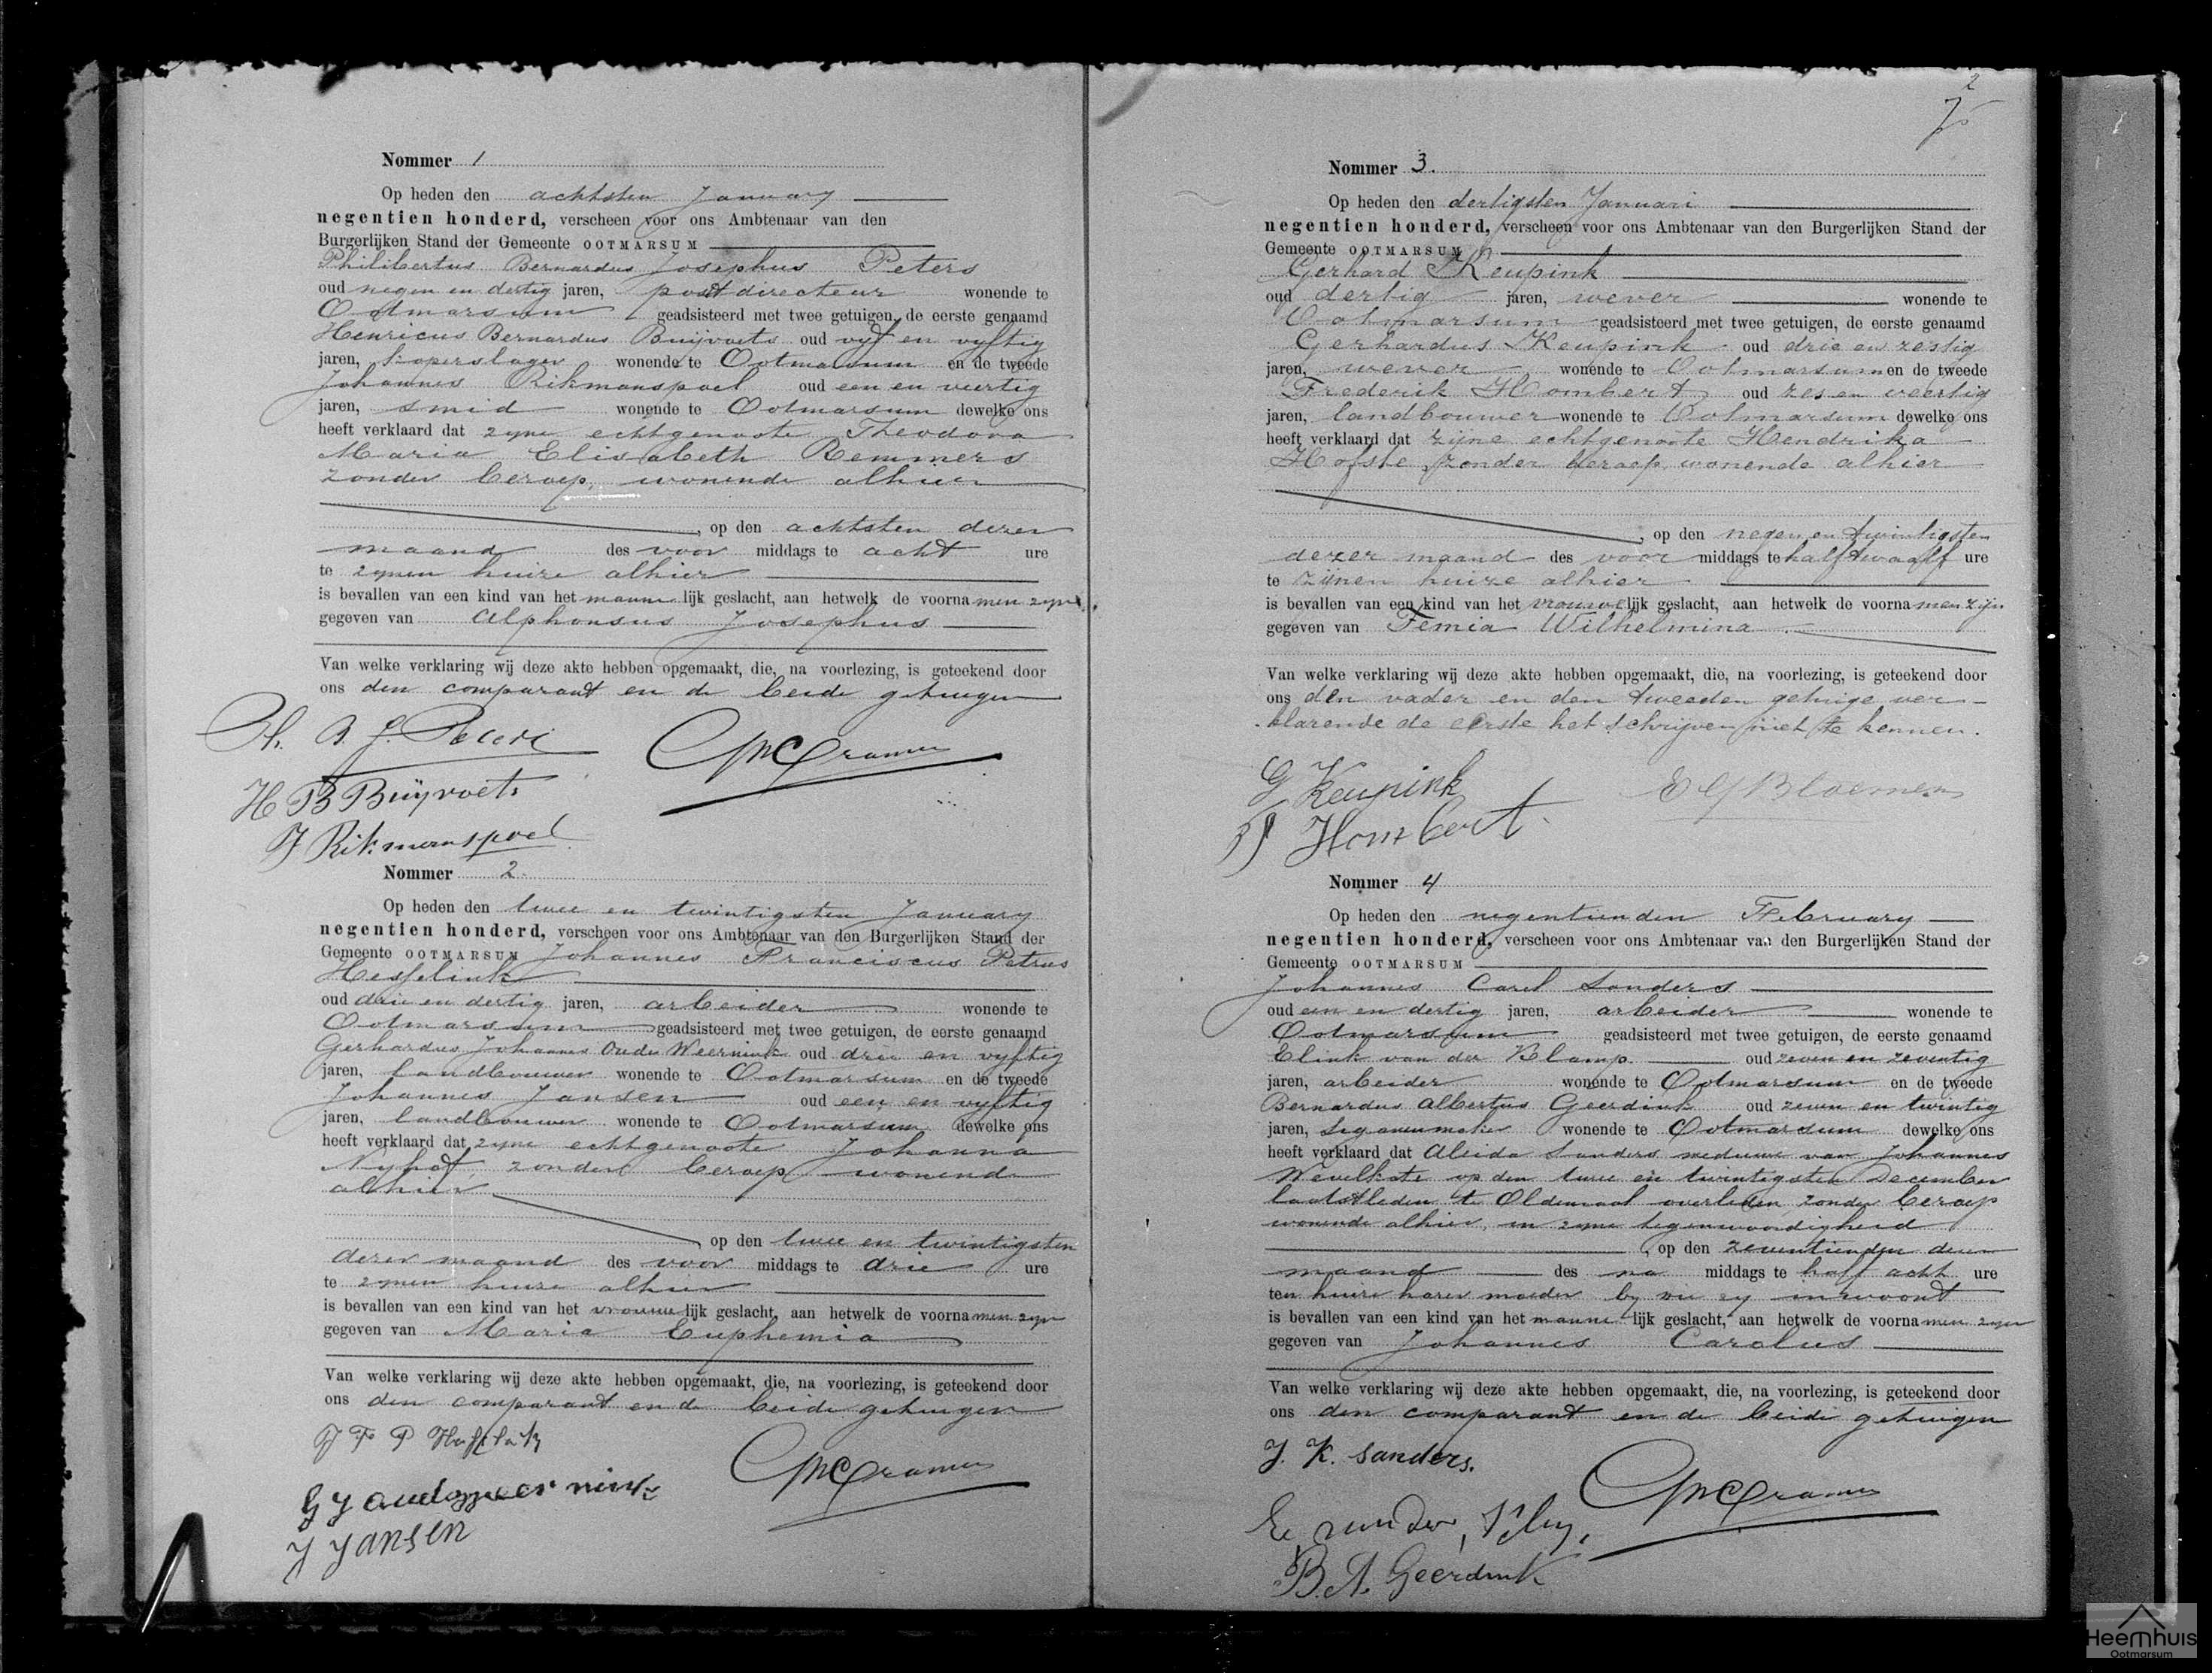 Nommer 1
Op heden den achtsten January
negentien honderd, verscheen voor ons Ambtenaar van den
Burgerlijken Stand der Gemeente OOTMARSUM
Philibertus Bernardus Josephus Peters
oud negen en dertig jaren, postdirecteur wonende te
Ootmarsum geadsisteerd met twee getuigen, de eerste genaamd
Henricus Bernardus Buijvoets oud vyf en vyftig
jaren, koperslager wonende te Ootmarsum en de tweede
Johannes Rikmanspoel oud een en veertig
jaren, smid wonende te Ootmarsum dewelke ons
heeft verklaard dat zyne echtgenoote Theodora
Maria Elisabeth Remmers
zonder beroep, wonende alhier
, op den achtsten dezer
maand des voor middags te acht ure
te zynen huize alhier
is bevallen van een kind van het manne lijk geslacht, aan hetwelk de voorna men zyn
gegeven van Alphonsus Josephus
Van welke verklaring wij deze akte hebben opgemaakt, die, na voorlezing, is geteekend door
ons den comparant en de beide getuigen
Ph. B. J. Peters
Cramer
H B Buijvoets
J Rikmanspoel
Nommer 2.
Op heden den twee en twintigsten January
negentien honderd, verscheen voor ons Ambtenaar van den Burgerlijken Stand der
Gemeente OOTMARSUM Johannes Franciscus Petrus
Hesselink
oud drie en dertig jaren, arbeider wonende te
Ootmarsum geadsisteerd met twee getuigen, de eerste genaamd
Gerhardus Johannes Oude Weernink oud drie en vyftig
jaren, landbouwer wonende te Ootmarsum en de tweede
Johannes Jansen oud een en vyftig
jaren, landbouwer wonende te Ootmarsum dewelke ons
heeft verklaard dat zyne echtgenoote Johanna
Nyhof, zonder beroep wonende
alhier
, op den twee en twintigsten
dezer maand des voor middags te drie ure
te zynen huize alhier
is bevallen van een kind van het vrouwe lijk geslacht, aan hetwelk de voorna men zyn
gegeven van Maria Euphemia
Van welke verklaring wij deze akte hebben opgemaakt, die, na voorlezing, is geteekend door
ons den comparant en de beide getuigen
J F P
Cramer
G J
J Jansen
2
Nommer 3.
Op heden den dertigsten Januari
negentien honderd, verscheen voor ons Ambtenaar van den Burgerlijken Stand der
Gemeente OOTMARSUM
Gerhard Keupink
oud dertig jaren, wever wonende te
Ootmarsum geadsisteerd met twee getuigen, de eerste genaamd
Gerhardus Keupink oud drie en zestig
jaren, wever wonende te Ootmarsum en de tweede
Frederik Hombert oud zes en veertig
jaren, landbouwer wonende te Ootmarsum dewelke ons
heeft verklaard dat zijne echtgenoote Hendrika
Hofste, zonder beroep, wonende alhier
, op den negen en twintigsten
dezer maand des voor middags te half twaalf ure
te zijnen huize alhier
is bevallen van een kind van het vrouwelijk geslacht, aan hetwelk de voorna men zijn
gegeven van Femia Wilhelmina
Van welke verklaring wij deze akte hebben opgemaakt, die, na voorlezing, is geteekend door
ons den vader en den tweeden getuige ver-
klarende de eerste het schrijven niet te kennen.
G Keupink
E G Bloemen
Hombert
Nommer 4
Op heden den negentienden February
negentien honderd, verscheen voor ons Ambtenaar van den Burgerlijken Stand der
Gemeente OOTMARSUM
Johannes Carel Sanders
oud een en dertig jaren, arbeider wonende te
Ootmarsum geadsisteerd met twee getuigen, de eerste genaamd
van der Klamp oud zeven en zeventig
jaren, arbeider wonende te Ootmarsum en de tweede
Bernardus Albertus Geerdink oud zeven en twintig
jaren, segarenmaker wonende te Ootmarsum dewelke ons
heeft verklaard dat Aleida Sanders weduwe van Johannes
op den twee en twintigsten December
laatstleden te Oldenzaal overleden, zonder beroep
wonende alhier, in zyne tegenwoordigheid
, op den zeventienden dezer
maand des na middags te half acht ure
ten huize harer moeder by wie zy inwoont
is bevallen van een kind van het manne lijk geslacht, aan hetwelk de voorna men zyn
gegeven van Johannes Carolus
Van welke verklaring wij deze akte hebben opgemaakt, die, na voorlezing, is geteekend door
ons den comparant en de beide getuigen
J. K. Sanders.
Cramer
B. A. Geerdink
Heemhuis
Ootmarsum